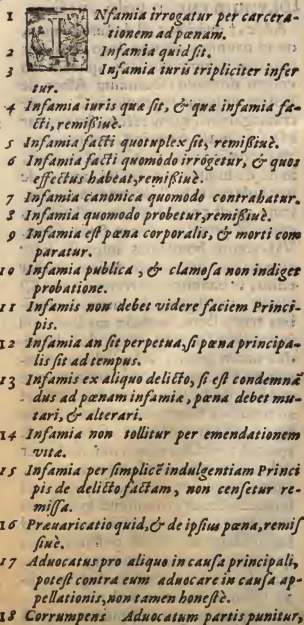 1 INfamia irrogatur per carcera-
tionem ad pœnam.
2 Infamia quid sit.
3 Infamia iuris tripliciter infer
tur.
4 Infamia iuris quæ sit, & quæ infamia fa-
cti, remißiuè.
5 Infamia facti quotuplex sit, remißiuè.
6 Infamia facti quomodo irrogetur, & quos
effectus habeat, remißiuè.
7 Infamia canonica quomodo contrahatur.
8 Infamia quomodo probetur, remißiuè.
9 Infamia est pœna corporalis, & morti com
paratur.
10 Infamia publica, & clamosa non indiget
probatione.
11 Infamis non debet videre faciem Princi-
pis.
12 Infamia an sit perpetua, si pœna principa-
lis sit ad tempus.
13 Infamis ex aliquo delicto, si est condemnā
dus ad pœnam infamiæ, pœna debet mu-
tari, & alterari.
14 Infamia non tollitur per emendationem
vitæ.
15 Infamia per simplicē indulgentiam Princi
pis de delicto factam, non censetur re-
missa.
16 Præuaricatio quid, & de ipsius pœna, remis
siuè.
17 Aduocatus pro aliquo in causa principali,
potest contra eum aduocare in causa ap-
pellationis, non tamen honestè.
18 Corrumpens Aduocatum partis punitur,